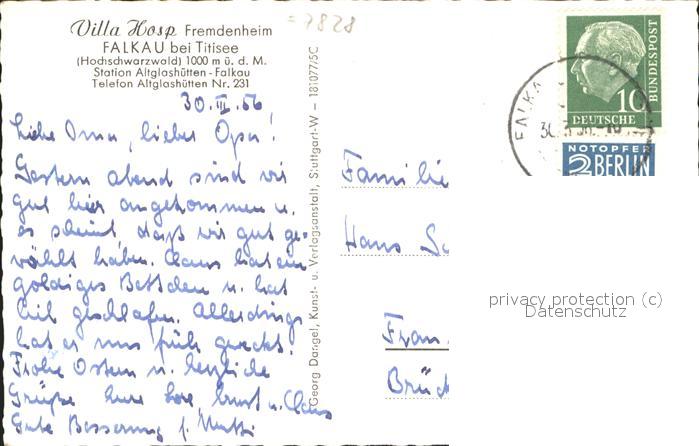 = 7828
Villa Hosp Fremdenheim
FALKAU bei Titisee
(Hochschwarzwald) 1000 m ü. d. M.
Station Altglashütten - Falkau
Telefon Altglashütten Nr. 231
30. III. 56
Liebe Oma, lieber Opa!
Gestern abend sind wir
gut hier angekommen u.
es scheint, daß wir gut ge-
wählt haben. Claus hat ein
goldiges Bettchen u. hat
geschlafen. Allerdings
hat er uns früh geweckt.
Frohe Ostern u. herzliche
Grüße Eure Lore, Ernst u. Claus
Gute Besserung f. Mutti
Georg Dangel, Kunst- u. Verlagsanstalt, Stuttgart-W – 181077/5C
DEUTSCHE BUNDESPOST
10
NOTOPFER
2 BERLIN
FALKA
Familie
Hans
Fran
Brück
privacy protection (c)
Datenschutz